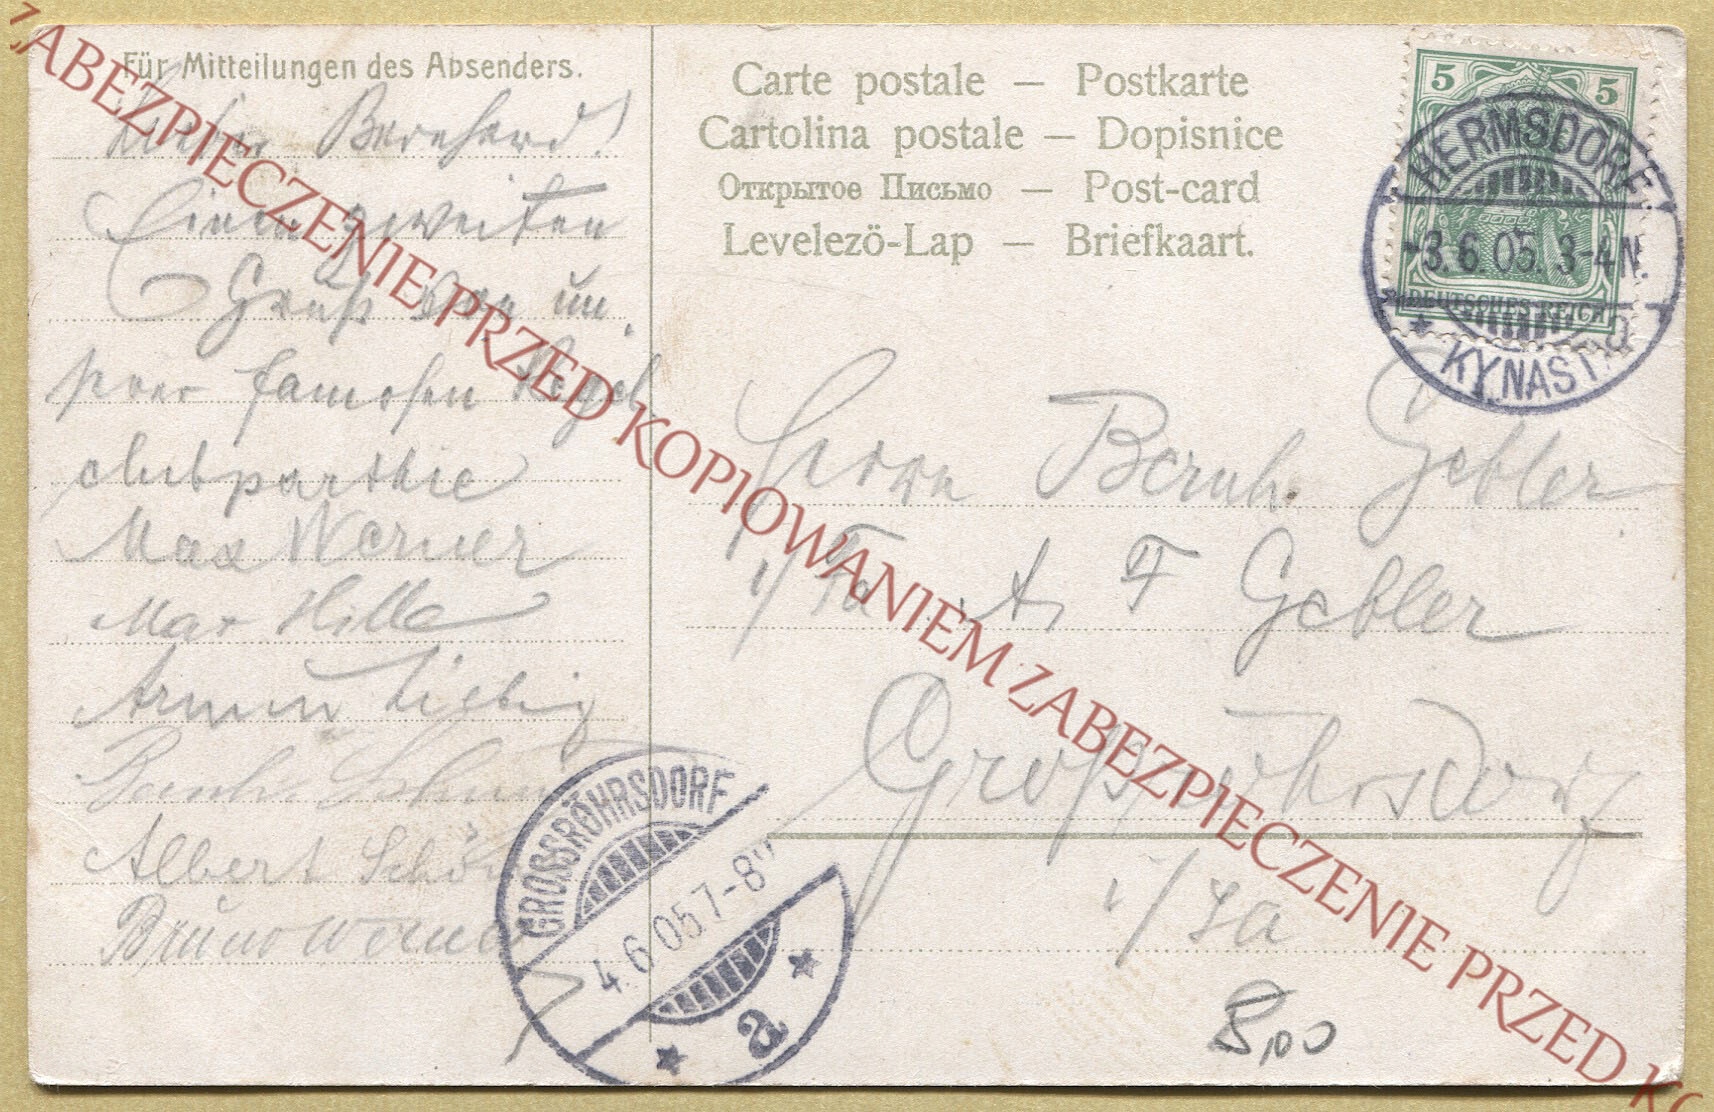 Für Mitteilungen des Absenders.
Lieber Bernhard!
Einen zweiten
Gruß von un,
serer famosen Kegel
clubparthie
Max Werner
Max Hille
Armin Liebig
Albert
Bruno Werner
Carte postale — Postkarte
Cartolina postale — Dopisnice
Открытое Письмо — Post-card
Levelező-Lap — Briefkaart.
5 5
DEUTSCHES REICH
HERMSDORF
-3.6.05. 3-4N.
KYNAST
Herrn Bernh. Gebler
i/Fa A, F Gebler
Großröhrsdorf
i/Sa
GROẞSRÖHRSDORF
4.6.05 7-8V
a
8,00
ZABEZPIECZENIE PRZED KOPIOWANIEM ZABEZPIECZENIE PRZED KO